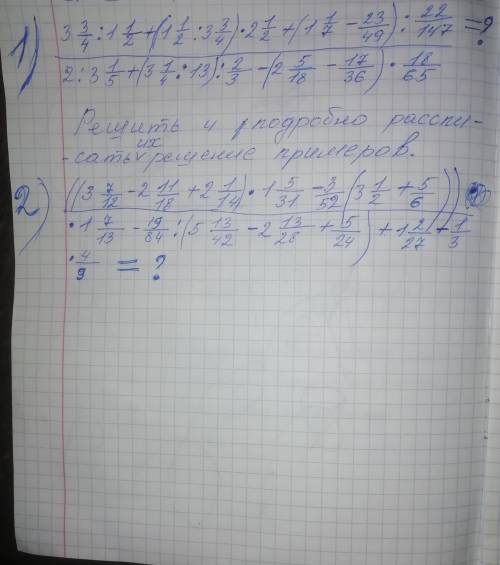 1) (3 3/4 : 1 1/2 + (1 1/2 : 3 3/4) · 2 1/2 + (1 1/7 − 23/49) : 22/147 = ?
2 : 3 1/5 + (3 1/4 : 13) : 2/3 − (2 5/18 − 17/36) · 18/65
Решить и подробно расспи-
-сать их решение примеров.
2) ((3 7/12 − 2 11/18 + 2 1/14) · 1 5/31 − 3/52 (3 1/2 + 5/6))
· 1 7/13 − 19/84 : (5 13/42 − 2 13/28 + 5/24) + 1 2/27 − 1/3
· 4/9 = ?